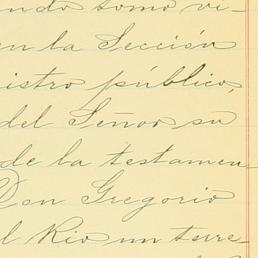 ndo tomo vi-
en la Sección
istro público,
del Señor su
de la testamen
Don Gregorio
l Rio un terre-